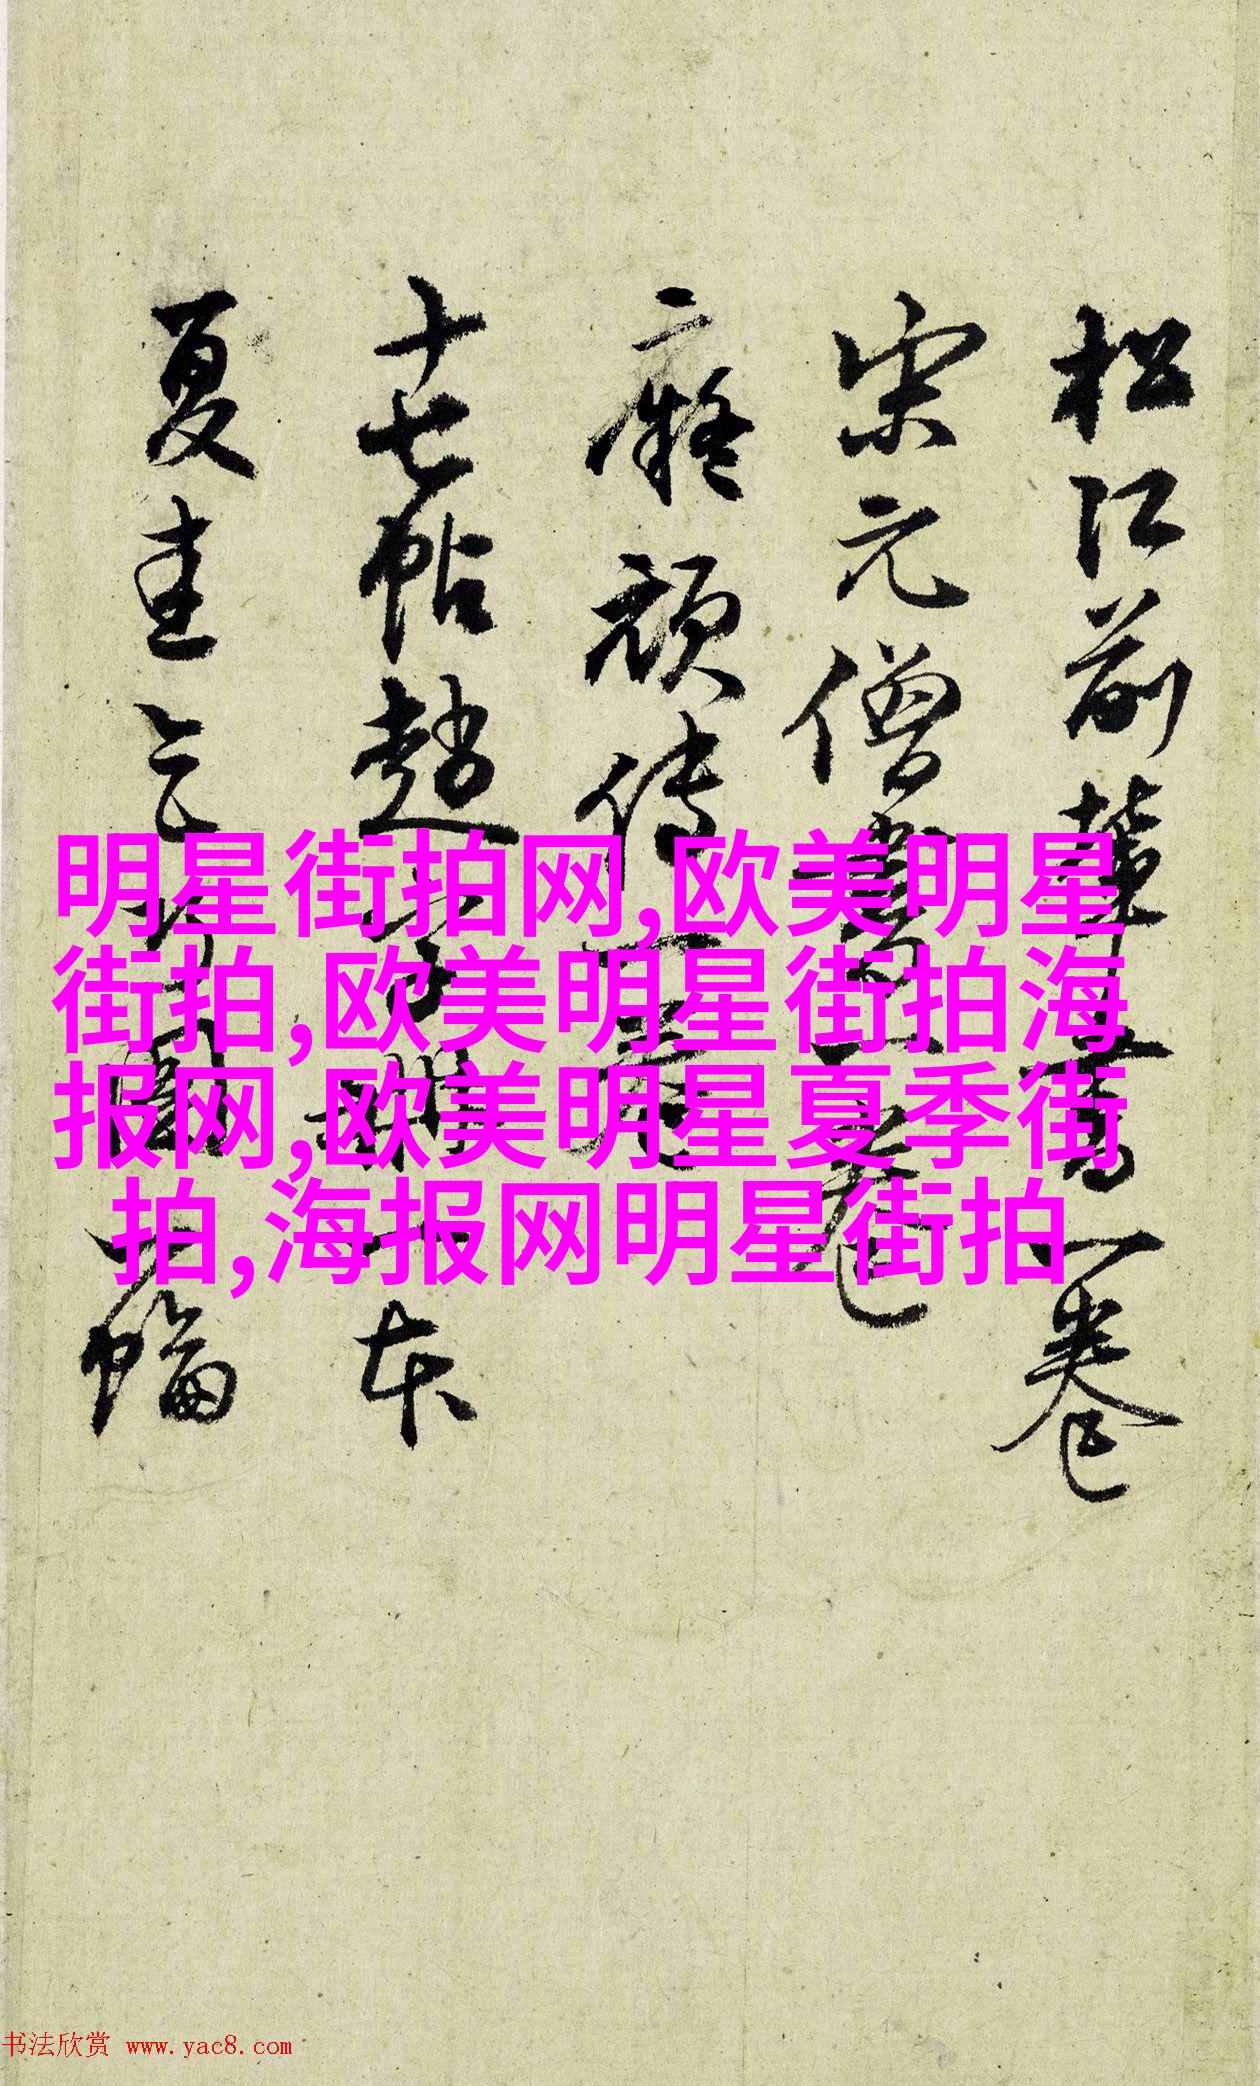 松江前辈书一卷
宋元僧
二痴顽传一卷
十七帖赵字湖本
夏圭
一幅
明星街拍网,欧美明星
街拍,欧美明星街拍海
报网,欧美明星夏季街
拍,海报网明星街拍
书法欣赏 www.yac8.com